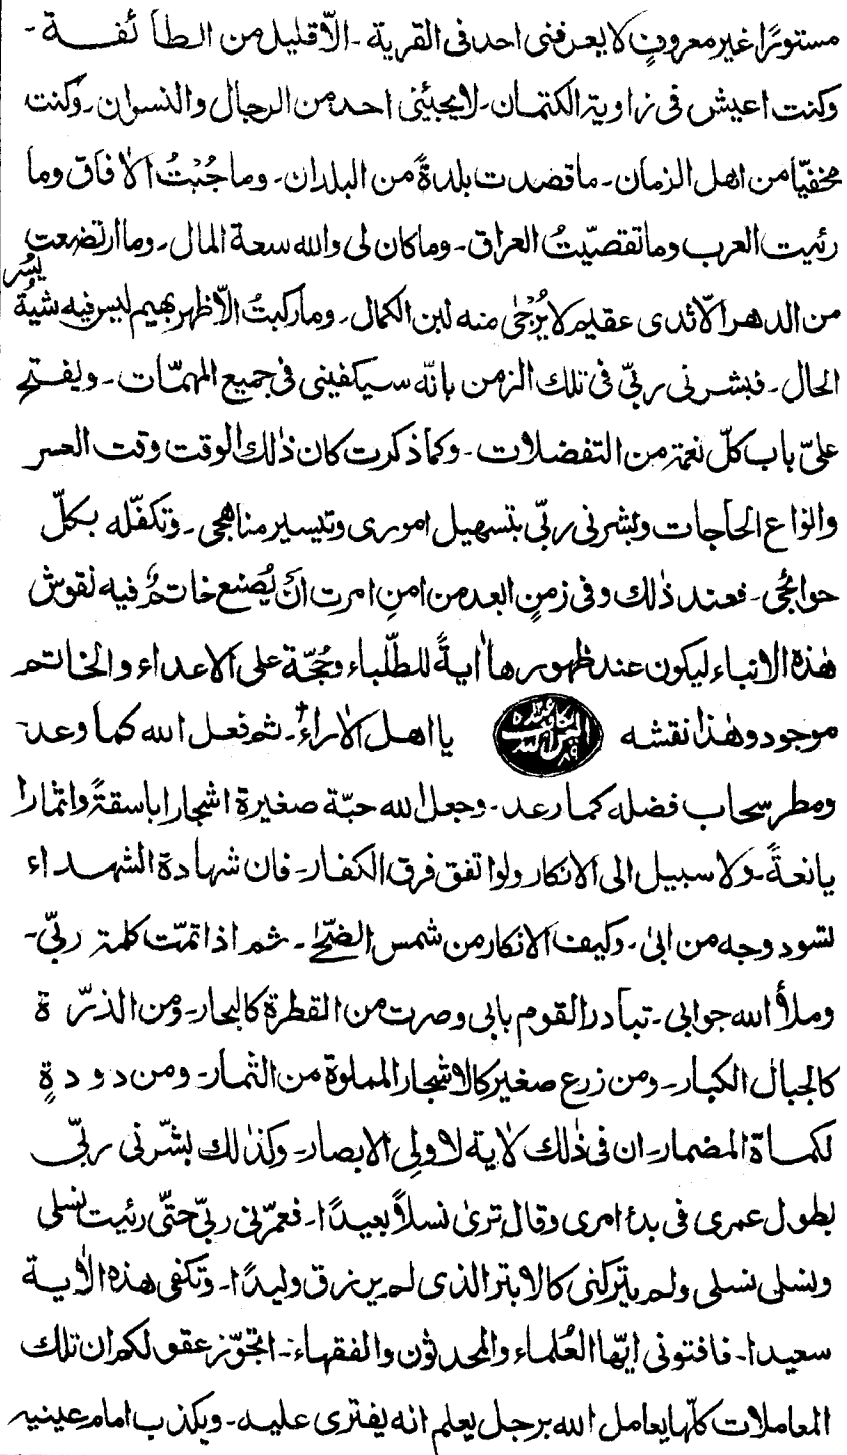 مستورًا غير معروفٍ لا يعرفنى احد فى القرية۔ الّا قليل من الطائفة۔
وكنت اعيش فى زاوية الكتمان۔ لا يجيئنى احد من الرجال والنسوان۔ وكنت
مخفيّا من اهل الزمان۔ ما قصدت بلدةً من البلدان۔ وما جُبْتُ الاٰفاق وما
رئيت العرب وما تقصّيتُ العراق۔ وما كان لى والله سعة المال۔ وما ارتضعت
من الدهر الّا ثدى عقيمٍ لا يُرْجٰى منه لبن الكمال۔ وما ركبتُ الّا ظهر بهيم ليس فيه شيةُ يُسر
الحال۔ فبشرنى ربّى فى تلك الزمن بانّه سيكفينى فى جميع المهمّات۔ ويفتح
علىّ باب كلّ نعمة من التفضلات۔ وكما ذكرت كان ذٰلك الوقت وقت العسر
وانواع الحاجات وبشرنى ربّى بتسهيل امورى وتيسير مناهجى۔ وتكفّله بكلّ
حوائجى۔ فعند ذٰلك وفى زمنٍ ابعد من امنٍ امرت ان يُصنع خاتمٌ فيه نقوش
هٰذه الانباء ليكون عند ظهورها اٰيةً للطّلباء وحُجّة على الاعداء والخاتم
موجود وهٰذا نقشه اليس الله بكاف عبده يا اهل الاٰراء۔ ثم فعل الله كما وعد
ومطر سحاب فضله كما رعد۔ وجعل الله حبّة صغيرة اشجارا باسقةً واثمارا
يانعةً۔ ولا سبيل الى الانكار ولو اتفق فرق الكفار۔ فان شهادة الشهداء
تسود وجه من ابىٰ۔ وكيف الانكار من شمس الضّحىٰ۔ ثم اذا تمّت كلمة ربّى۔
وملأ الله جرابى۔ تبادر القوم بابى وصرت من القطرة كالبحار۔ ومن الذرّة
كالجبال الكبار۔ ومن زرع صغير كالاشجار المملوّة من الثمار۔ ومن دودةٍ
لكماة المضمار۔ ان فى ذٰلك لاٰية لاولى الابصار۔ وكذٰلك بشّرنى ربّى
بطول عمرى فى بدء امرى وقال ترىٰ نسلًا بعيدًا۔ فعمّرنى ربّى حتّى رئيت نسلى
ونسل نسلى ولم يتركنى كالابتر الذى لم يرزق وليدًا۔ وتكفى هٰذه الاٰية
سعيدا۔ فافتونى ايّها العُلماء والمحدثون والفقهاء۔ اتجوّز عقولكم ان تلك
المعاملات كلّها يعامل الله برجل يعلم انه يفترى عليه۔ ويكذب امام عينيه